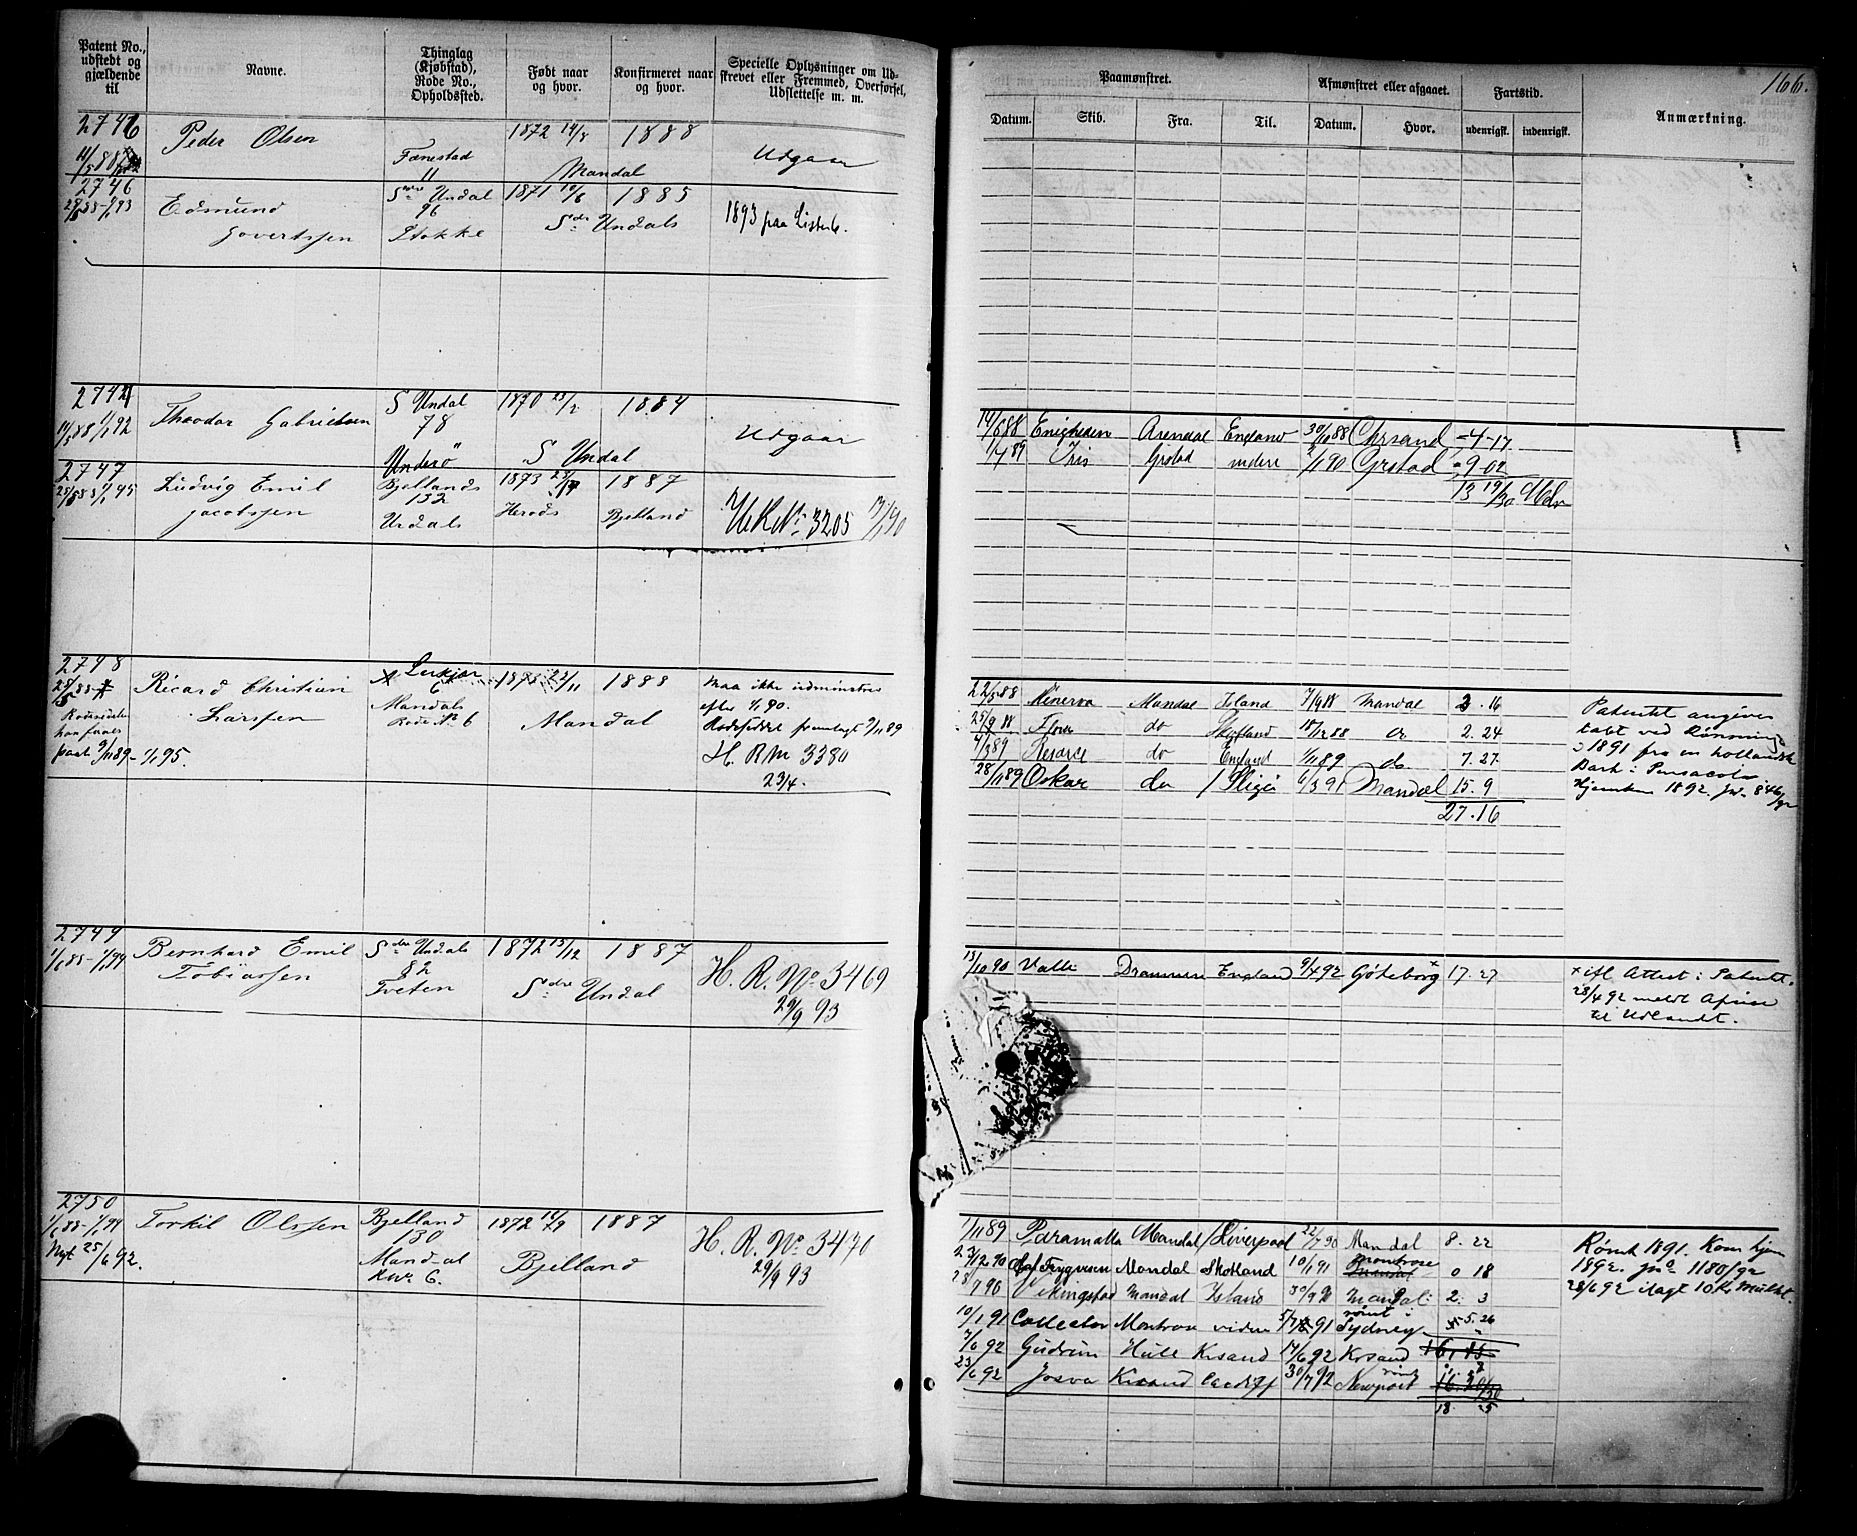 Patent No., udstedt og gjældende til
Navne.
Thinglag (Kjøbstad), Rode No., Opholdssted.
Født naar og hvor.
Konfirmeret naar og hvor.
Specielle Oplysninger om Udskrevet eller Fremmed, Overførsel, Udslettelse m. m.
Paamønstret.
Afmønstret eller afgaaet.
Fartstid.
Anmærkning.
166.
Datum.
Skib.
Fra.
Til.
Datum.
Hvor.
udenrigsk.
indenrigsk.
Peder Olsen
1872 14/8
1888
11
Mandal
Udgaar
2746
Edmund
Govertssen
Sdre Undal
96
Stokke
1871 10/6
1885
Sdre Undals
1893 paa Listerl.
Theodor Gabrielsen
S Undal
78
Underö
1870 23/2
1884
S Undal
Udgaar
14/5 88 Enigheden Arendal England 30/10 88 Chrsand -4-17
Iris Grstad videre 2/1 90 Grstad 9-02
13 19/30 Mdr
2747
Ludvig Emil
Jacobssen
Bjellands
132
Undals
1873
Herods
1887
Bjelland
No 3205 17/1 90
2748
Ricard Christian
Larssen
6
Mandals
Rode No 6
1888
Mandal
Maa ikke udmønstres
efter 1/1 90.
Rodeseddel fremlagt 9/11 89
H. R No 3380
23/4.
paat 9/11 89 - 1/1 95.
22/5 88 Minerva Mandal Island 7/9 88 Mandal 3.16
25/9 88 Flora do Skotland 18/12 88 do 2.24
4/3 89 do England 1/11 89 do 7.27
28/11 89 Oskar do / Sligo 6/3 91 Mandal 15.9
27.16
Patentet angives
tabt ved Rømning
i 1891 fra en hollandsk
Bark i Pensacola
Hjemkom 1892. jr. 846/92
2749
1/6 88 - 1/1 94
Bernhard Emil
Tobiassen
Sdre Undals
82
Tveten
1872 13/12
1887
Sdre Undal
H. R. No. 3469
29/9 93
13/10 90 Valle Drammen England 9/4 92 Göteborg x 17.27
x ifl. Attest i Patentet.
28/4 92 meldt Afreise
til Udlandet.
2750
1/6 88 - 1/1 94
Nyt 25/6 92.
Torkil Olssen
Bjelland
130
Mandal
Kvr 6.
1872
1887
Bjelland
H. R. No. 3470
29/9 93
1/11 89 Paramatta Mandal / Liverpool 22/7 90 Mandal 8.22
23/12 90 Mandal Skotland 10/1 91 Montrose 0 18
28/7 90 Vikingstad Mandal Island 30/9 90 Mandal 2.3
10/1 91 Collector Montrose viden 5/7 91 rømt i Sydney 5.26
7/6 92 Gudrun Hull Krsand 14/6 92 Krsand
23/6 92 Josva Krsand Cardiff 30/7 92 Newport rømt
18 25
Rømt 1891. Kom hjem
1892. jno 1180/92
28/6 92 ilagt 10 Kr Mulkt.